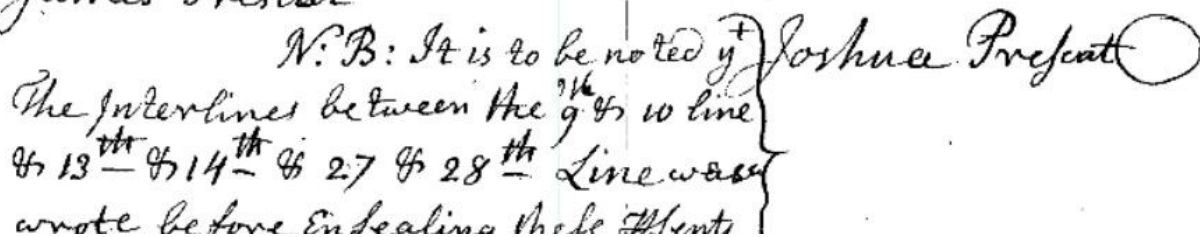 James Prescut
N: B: It is to be noted yt Joshua Prescutt
The Interlines between the 9th & 10 line
& 13th & 14th & 27 & 28th Line was
wrote before Ensealing these Psents